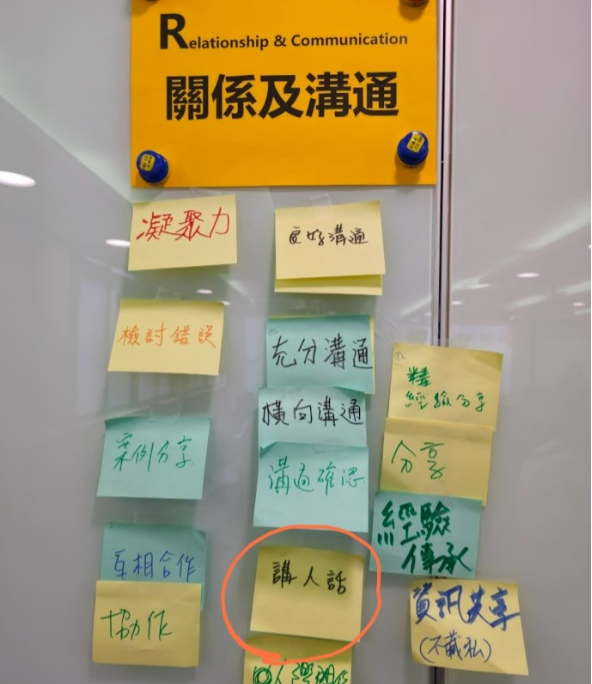 Relationship & Communication
關係及溝通
凝聚力
檢討錯誤
案例分享
互相合作
協作
更好溝通
充分溝通
橫向溝通
溝通確認
講人話
經驗分享
分享
經驗
傳承
資訊共享
(不藏私)